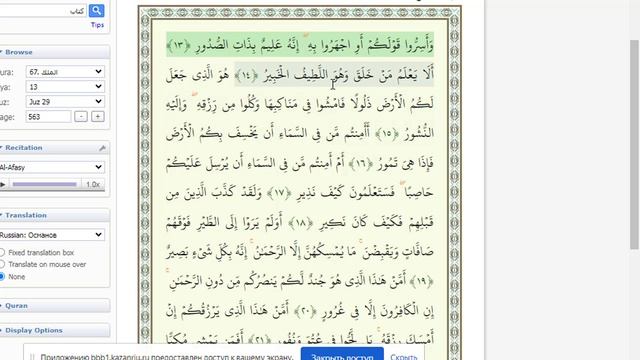 كتاب
Tips
Browse
ura: 67. الملك
ya: 13
uz: Juz 29
age: 563
Recitation
Al-Afasy
1.0x
Translation
Russian: Османов
Fixed translation box
Translate on mouse over
None
Quran
Display Options
وَأَسِرُّوا قَوْلَكُمْ أَوِ اجْهَرُوا بِهِ ۖ إِنَّهُ عَلِيمٌ بِذَاتِ الصُّدُورِ ﴿١٣﴾
أَلَا يَعْلَمُ مَنْ خَلَقَ وَهُوَ اللَّطِيفُ الْخَبِيرُ ﴿١٤﴾ هُوَ الَّذِي جَعَلَ
لَكُمُ الْأَرْضَ ذَلُولًا فَامْشُوا فِي مَنَاكِبِهَا وَكُلُوا مِن رِّزْقِهِ ۖ وَإِلَيْهِ
النُّشُورُ ﴿١٥﴾ أَأَمِنتُم مَّن فِي السَّمَاءِ أَن يَخْسِفَ بِكُمُ الْأَرْضَ
فَإِذَا هِيَ تَمُورُ ﴿١٦﴾ أَمْ أَمِنتُم مَّن فِي السَّمَاءِ أَن يُرْسِلَ عَلَيْكُمْ
حَاصِبًا ۖ فَسَتَعْلَمُونَ كَيْفَ نَذِيرِ ﴿١٧﴾ وَلَقَدْ كَذَّبَ الَّذِينَ مِن
قَبْلِهِمْ فَكَيْفَ كَانَ نَكِيرِ ﴿١٨﴾ أَوَلَمْ يَرَوْا إِلَى الطَّيْرِ فَوْقَهُمْ
صَافَّاتٍ وَيَقْبِضْنَ ۚ مَا يُمْسِكُهُنَّ إِلَّا الرَّحْمَٰنُ ۚ إِنَّهُ بِكُلِّ شَيْءٍ بَصِيرٌ
﴿١٩﴾ أَمَّنْ هَٰذَا الَّذِي هُوَ جُندٌ لَّكُمْ يَنصُرُكُم مِّن دُونِ الرَّحْمَٰنِ ۚ
إِنِ الْكَافِرُونَ إِلَّا فِي غُرُورٍ ﴿٢٠﴾ أَمَّنْ هَٰذَا الَّذِي يَرْزُقُكُمْ إِنْ
أَمْسَكَ رِزْقَهُ ۚ بَل لَّجُّوا فِي عُتُوٍّ وَنُفُورٍ ﴿٢١﴾ أَفَمَن يَمْشِي مُكِبًّا
Приложению bbb1.kazanriu.ru предоставлен доступ к вашему экрану.
Закрыть доступ
Скрыть